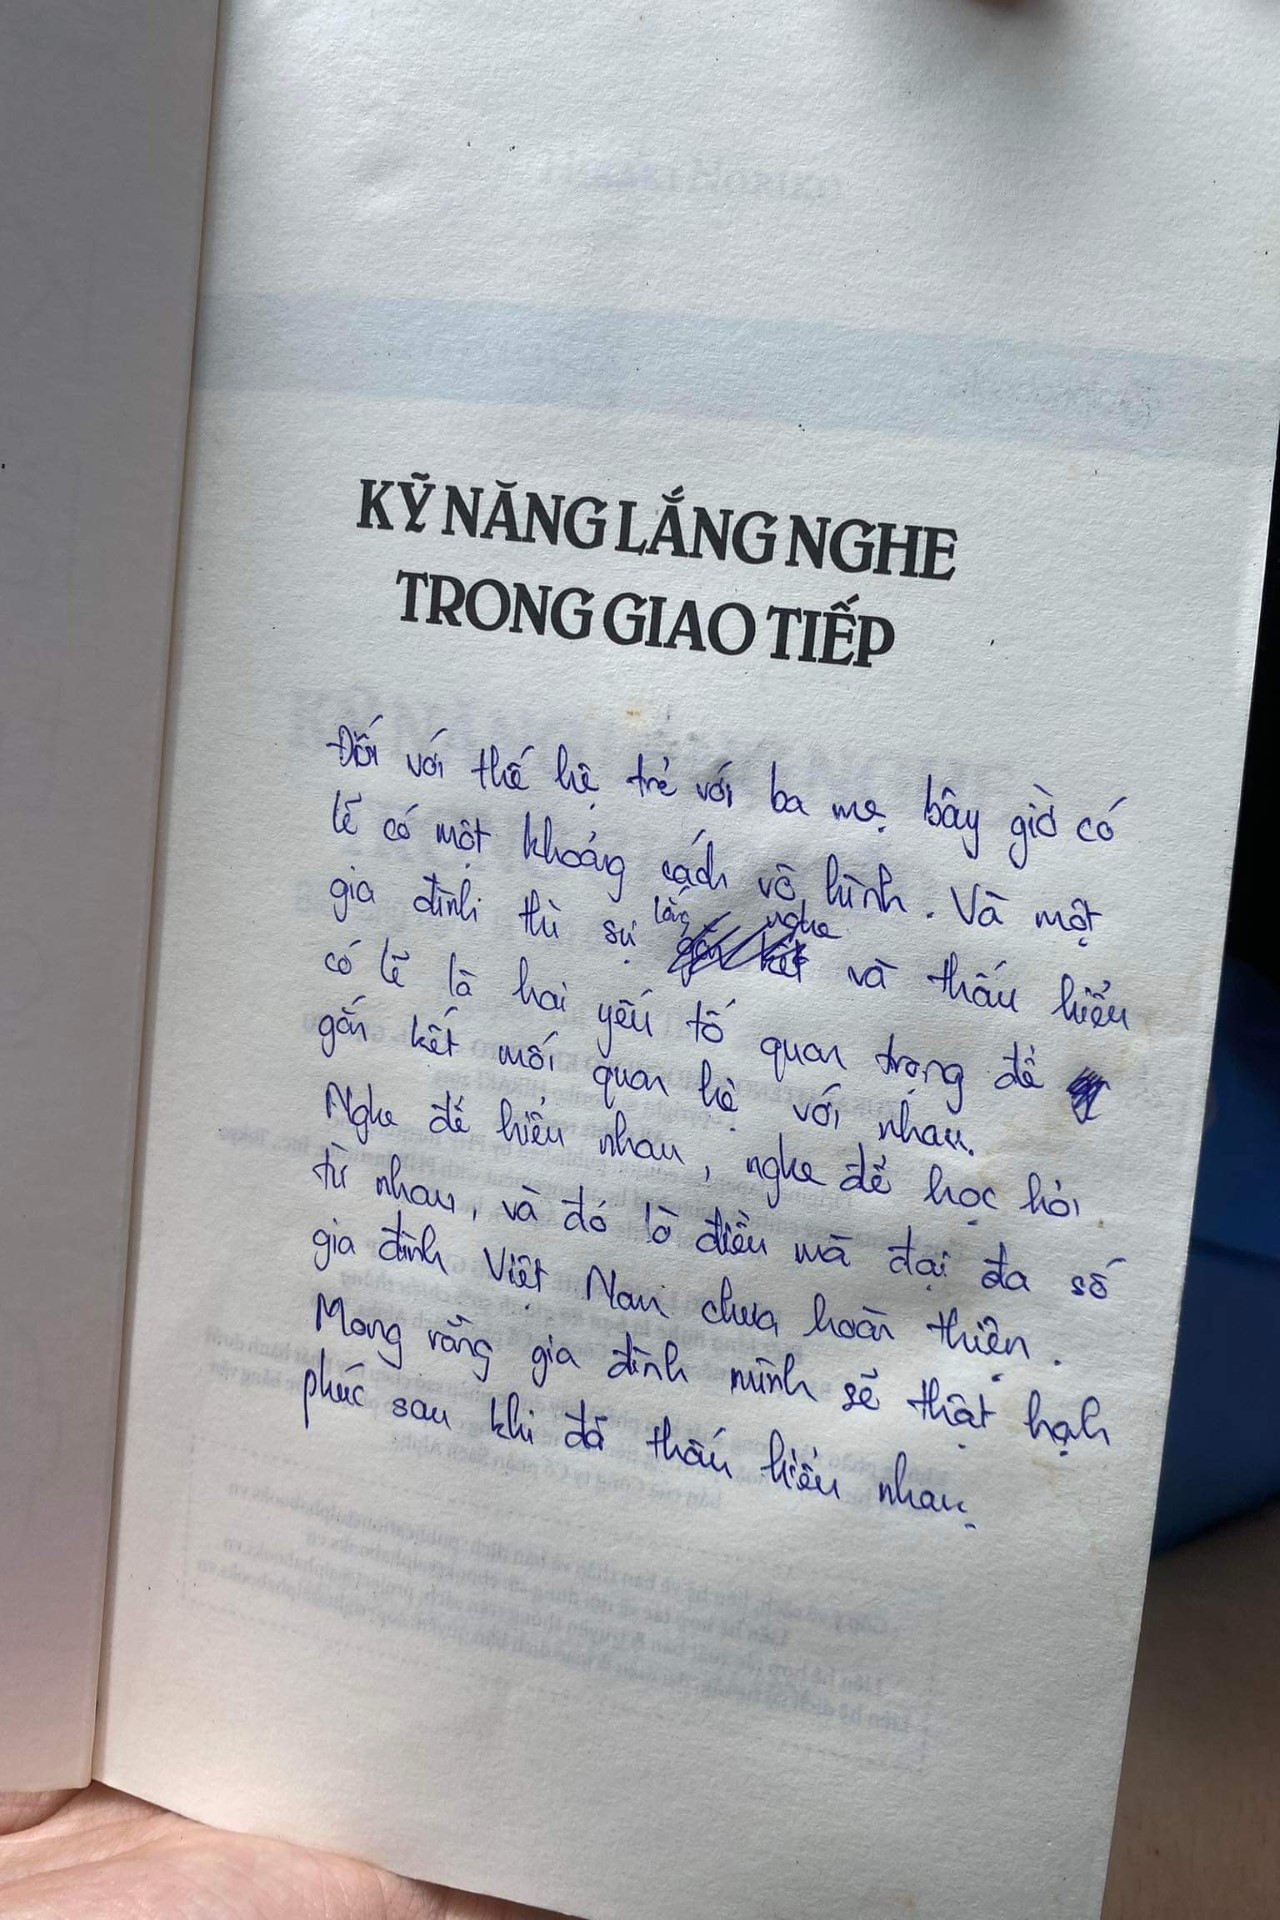 KỸ NĂNG LẮNG NGHE
TRONG GIAO TIẾP
Đối với thế hệ trẻ với ba mẹ bây giờ có
lẽ có một khoảng cách vô hình. Và một
gia đình thì sự lắng nghe và thấu hiểu
có lẽ là hai yếu tố quan trọng để
gắn kết mối quan hệ với nhau.
Nghe để hiểu nhau, nghe để học hỏi
từ nhau, và đó là điều mà đại đa số
gia đình Việt Nam chưa hoàn thiện.
Mong rằng gia đình mình sẽ thật hạnh
phúc sau khi đã thấu hiểu nhau.